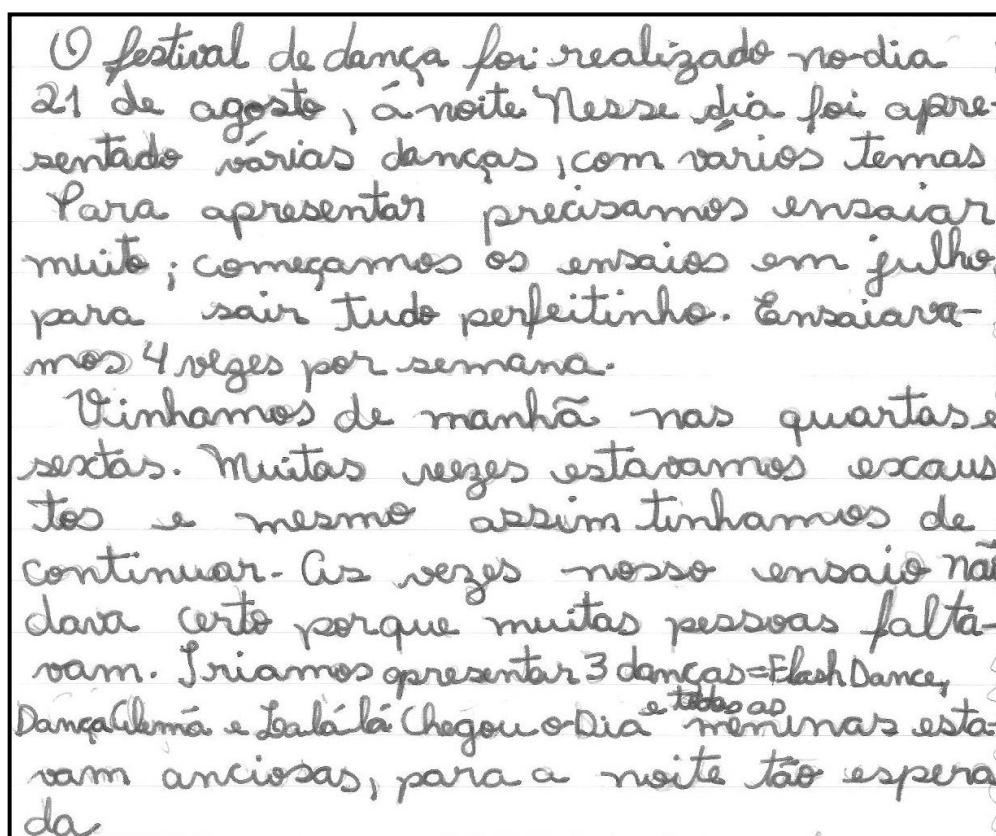 O festival de dança foi realizado no dia
21 de agosto, á noite Nesse dia foi apre-
sentado várias danças, com varios temas
Para apresentar precisamos ensaiar
muito; começamos os ensaios em julho
para sair tudo perfeitinho. Ensaiava-
mos 4 vezes por semana.
Vinhamos de manhã nas quartas e
sextas. Muitas vezes estavamos excaus
tos e mesmo assim tinhamos de
continuar. As vezes nosso ensaio não
dava certo porque muitas pessoas falta-
vam. Iriamos apresentar 3 danças=Flash Dance,
Dança Alemã e Lá chegou o Dia e todas as meninas esta-
vam anciosas, para a noite tão espera
da